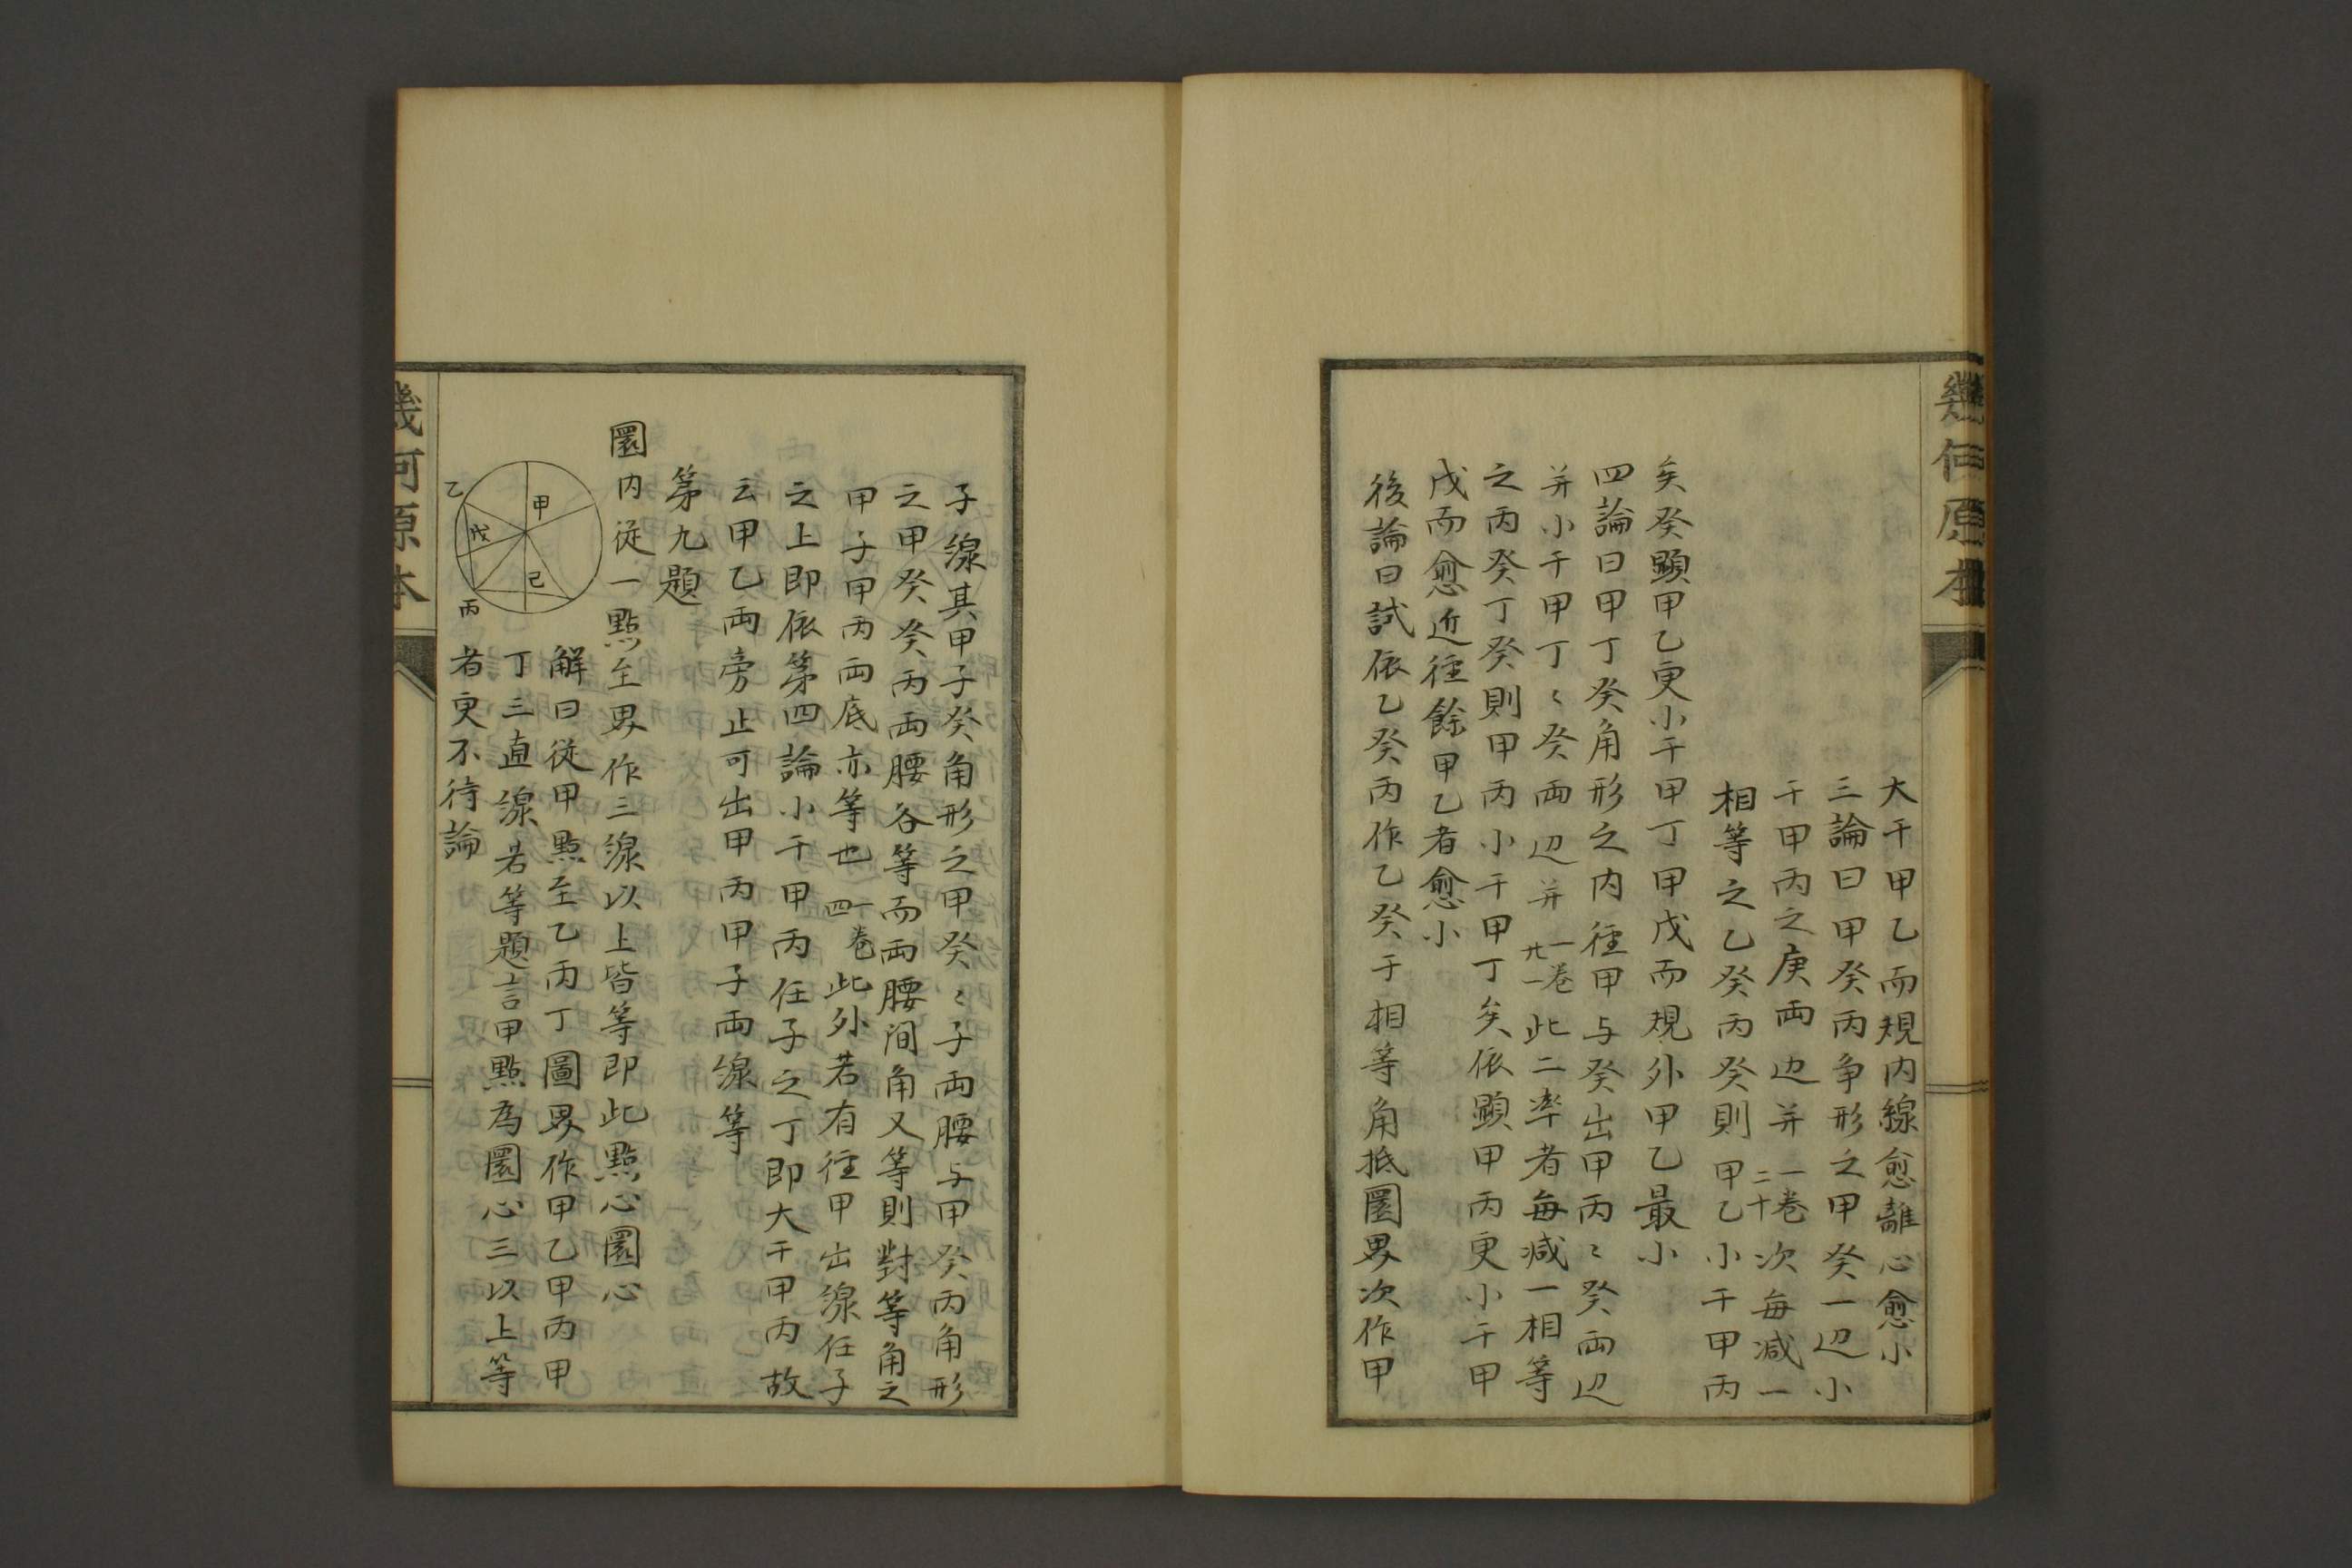 幾何原本
大于甲乙而規内線愈離心愈小
三論曰甲癸丙争形之甲癸一边小
于甲丙之庚両边并一卷二十次每减一
相等之乙癸丙癸則甲乙小于甲丙
矣癸顕甲乙更小于甲丁甲戊而規外甲乙最小
四論曰甲丁癸角形之内徑甲与癸出甲丙〻癸両辺
并小于甲丁〻癸両辺并一卷廿一此二率者每减一相等
之丙癸丁癸則甲丙小于甲丁矣依顕甲丙更小于甲
戊而愈近徑餘甲乙者愈小
後論曰試依乙癸丙作乙癸于相等角抵圜界次作甲
子線其甲子癸角形之甲癸〻子両腰与甲癸丙角形
之甲癸癸丙両腰各等而両腰间角又等則對等角之
甲子甲丙両底亦等也一卷四此外若有徑甲出線任子
之上即依第四論小于甲丙任子之丁即大于甲丙故
云甲乙両旁止可出甲丙甲子両線等
第九題
圜内從一點至界作三線以上皆等即此點心圜心
甲
乙
戊
己
丙
解曰從甲點至乙丙丁圖界作甲乙甲丙甲
丁三直線若等題言甲點為圜心三以上等
者更不待論
幾何原本